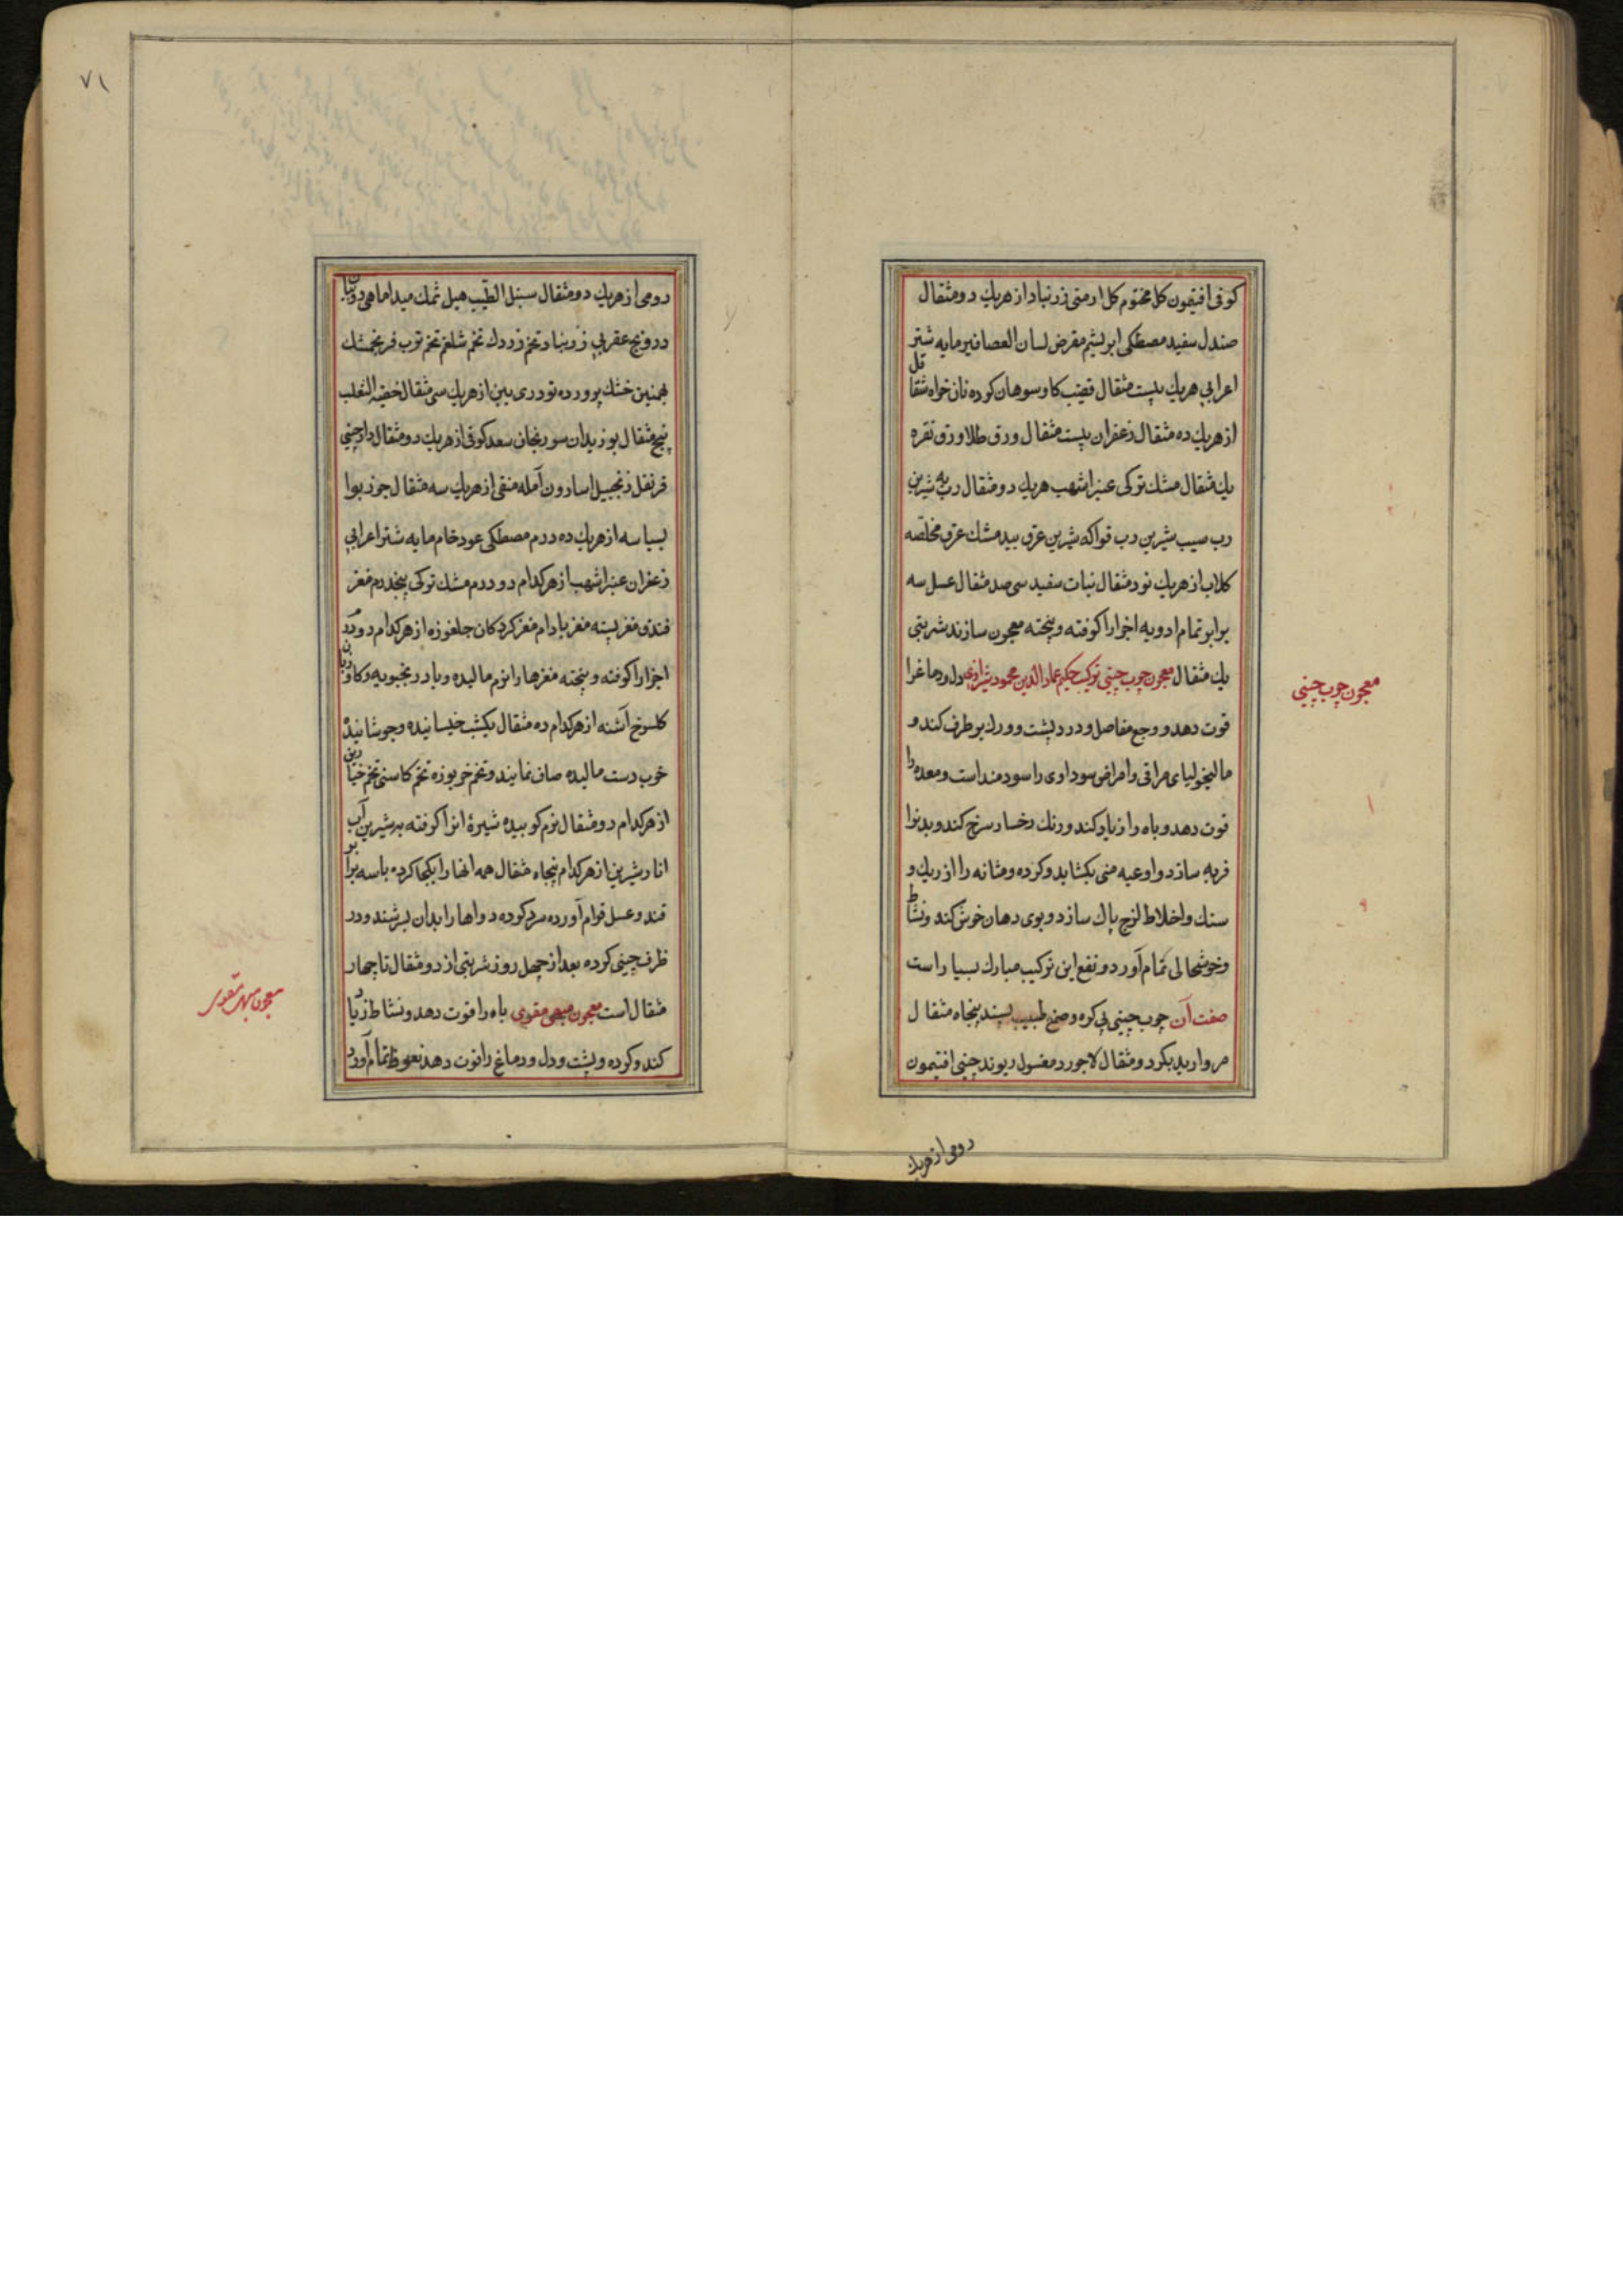 کوفی افتیمون کل مختوم کل ارمنی زرنباد از هریك دو مثقال
صندل سفید مصطکی ابریشم مقرض لسان العصافیر مایه شتر
اعرابی هریك بیست مثقال قضیب کاو سوهان کرده نان خواه شقاقل
از هریك ده مثقال زعفران بیست مثقال ورق طلا ورق نقره
یك مثقال مشك ترکی عنبر اشهب هریك دو مثقال رب به شیرین
رب سیب شیرین رب فواکه شیرین عرق بیدمشك عرق مخلصه
کلاب از هریك نود مثقال نبات سفید سی صد مثقال عسل سه
برابر تمام ادویه اجزا را کوفته و پخته معجون سازند شربتی
یك مثقال معجون چوب چینی ترکیب حکیم عماد الدین محمود شیرازی دل و دماغ را
قوت دهد و وجع مفاصل و درد پشت و ورك برطرف کند و
مالیخولیای مراقی و امراض سوداوی را سودمند است و معده را
قوت دهد و باه را زیاد کند و رنك رخسار سرخ کند و بدنرا
فربه سازد و اوعیه منی بکشاید و کرده و مثانه را از ریك و
سنك و اخلاط لزج پاك سازد و بوی دهان خوش کند و نشاط
و خوشحالی تمام آورد و نفع این ترکیب مبارك بسیار است
صفت آن چوب چینی بی کره و صمغ طبیب پسند پنجاه مثقال
مروارید بکر دو مثقال لاجورد مغسول ریوند چینی افتیمون
معجون چوب چینی
رومی از هریك
۷۱
رومی از هریك دو مثقال سنبل الطیب هیل نمك میدا ماهی روبیان
درونج عقربی زرنباد تخم زردك تخم شلغم تخم ترب فرنجمشك
بهمنین خشك پرورده تودری بین از هریك سی مثقال خصیة الثعلب
پنج مثقال بوزیدان سورنجان سعد کوفی از هریك دو مثقال دارچینی
قرنفل زنجبیل اسارون آمله منقی از هریك سه مثقال جوز بوا
بسباسه از هریك ده درم مصطکی عود خام مایه شتر اعرابی
زعفران عنبر اشهب از هرکدام دو درم مشك ترکی پنجدرم مغز
فندق مغز پسته مغز بادام مغز کردکان جلغوزه از هرکدام دو درم
اجزا را کوفته و پخته مغزها را نرم مالیده و بادرنجبویه و کاوزبان
کلسرخ آشنه از هرکدام ده مثقال یکشب خیسانیده و جوشانیده
خوب دست مالیده صاف نمایند و تخم خربوزه تخم کاسنی تخم خیارین
از هرکدام دو مثقال نرم کوبیده شیرۀ انرا کرفته به شیرین آب
انار شیرین از هرکدام پنجاه مثقال همه انها را یکجا کرده با سه برابر
قند و عسل قوام آورده سرد کرده دواها را بدان بسرشند و در
ظرف چینی کرده بعد از چهل روز شربتی از دو مثقال تا چهار
مثقال است معجون مبهی مقوی باه را قوت دهد و نشاط زیاد
کند و کرده و پشت و دل و دماغ را قوت دهد نعوظ تمام آورد
معجون مبهی مقوی